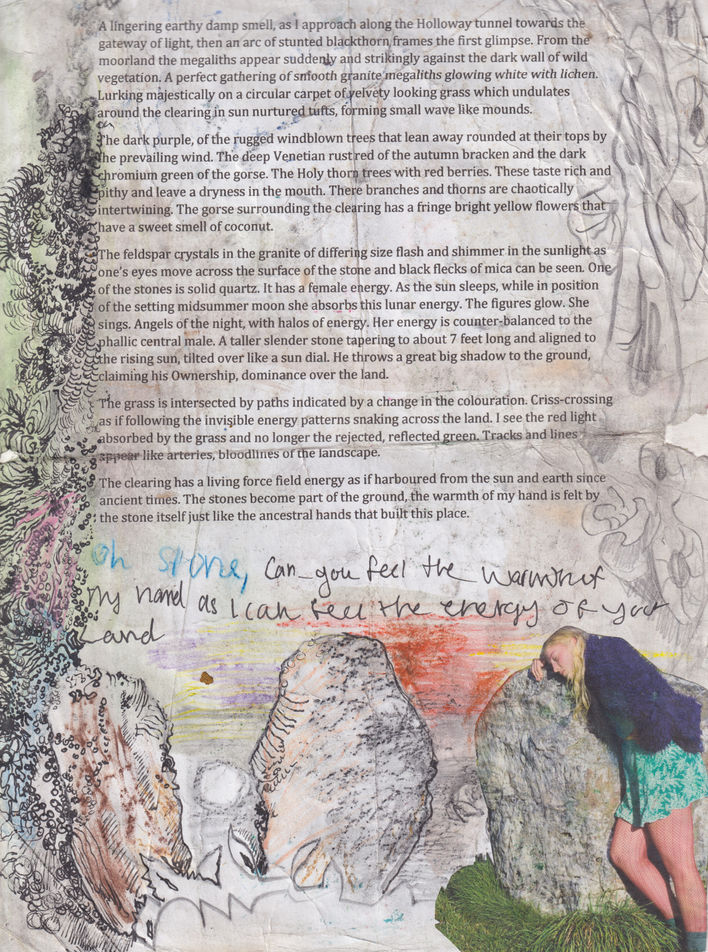 A lingering earthy damp smell, as I approach along the Holloway tunnel towards the
gateway of light, then an arc of stunted blackthorn frames the first glimpse. From the
moorland the megaliths appear suddenly and strikingly against the dark wall of wild
vegetation. A perfect gathering of smooth granite megaliths glowing white with lichen.
Lurking majestically on a circular carpet of velvety looking grass which undulates
around the clearing in sun nurtured tufts, forming small wave like mounds.
The dark purple, of the rugged windblown trees that lean away rounded at their tops by
the prevailing wind. The deep Venetian rust red of the autumn bracken and the dark
chromium green of the gorse. The Holy thorn trees with red berries. These taste rich and
pithy and leave a dryness in the mouth. There branches and thorns are chaotically
intertwining. The gorse surrounding the clearing has a fringe bright yellow flowers that
have a sweet smell of coconut.
The feldspar crystals in the granite of differing size flash and shimmer in the sunlight as
one's eyes move across the surface of the stone and black flecks of mica can be seen. One
of the stones is solid quartz. It has a female energy. As the sun sleeps, while in position
of the setting midsummer moon she absorbs this lunar energy. The figures glow. She
sings. Angels of the night, with halos of energy. Her energy is counter-balanced to the
phallic central male. A taller slender stone tapering to about 7 feet long and aligned to
the rising sun, tilted over like a sun dial. He throws a great big shadow to the ground,
claiming his Ownership, dominance over the land.
The grass is intersected by paths indicated by a change in the colouration. Criss-crossing
as if following the invisible energy patterns snaking across the land. I see the red light
absorbed by the grass and no longer the rejected, reflected green. Tracks and lines
appear like arteries, bloodlines of the landscape.
The clearing has a living force field energy as if harboured from the sun and earth since
ancient times. The stones become part of the ground, the warmth of my hand is felt by
the stone itself just like the ancestral hands that built this place.
oh stone, can you feel the warmth of
my hand as I can feel the energy of your
Land